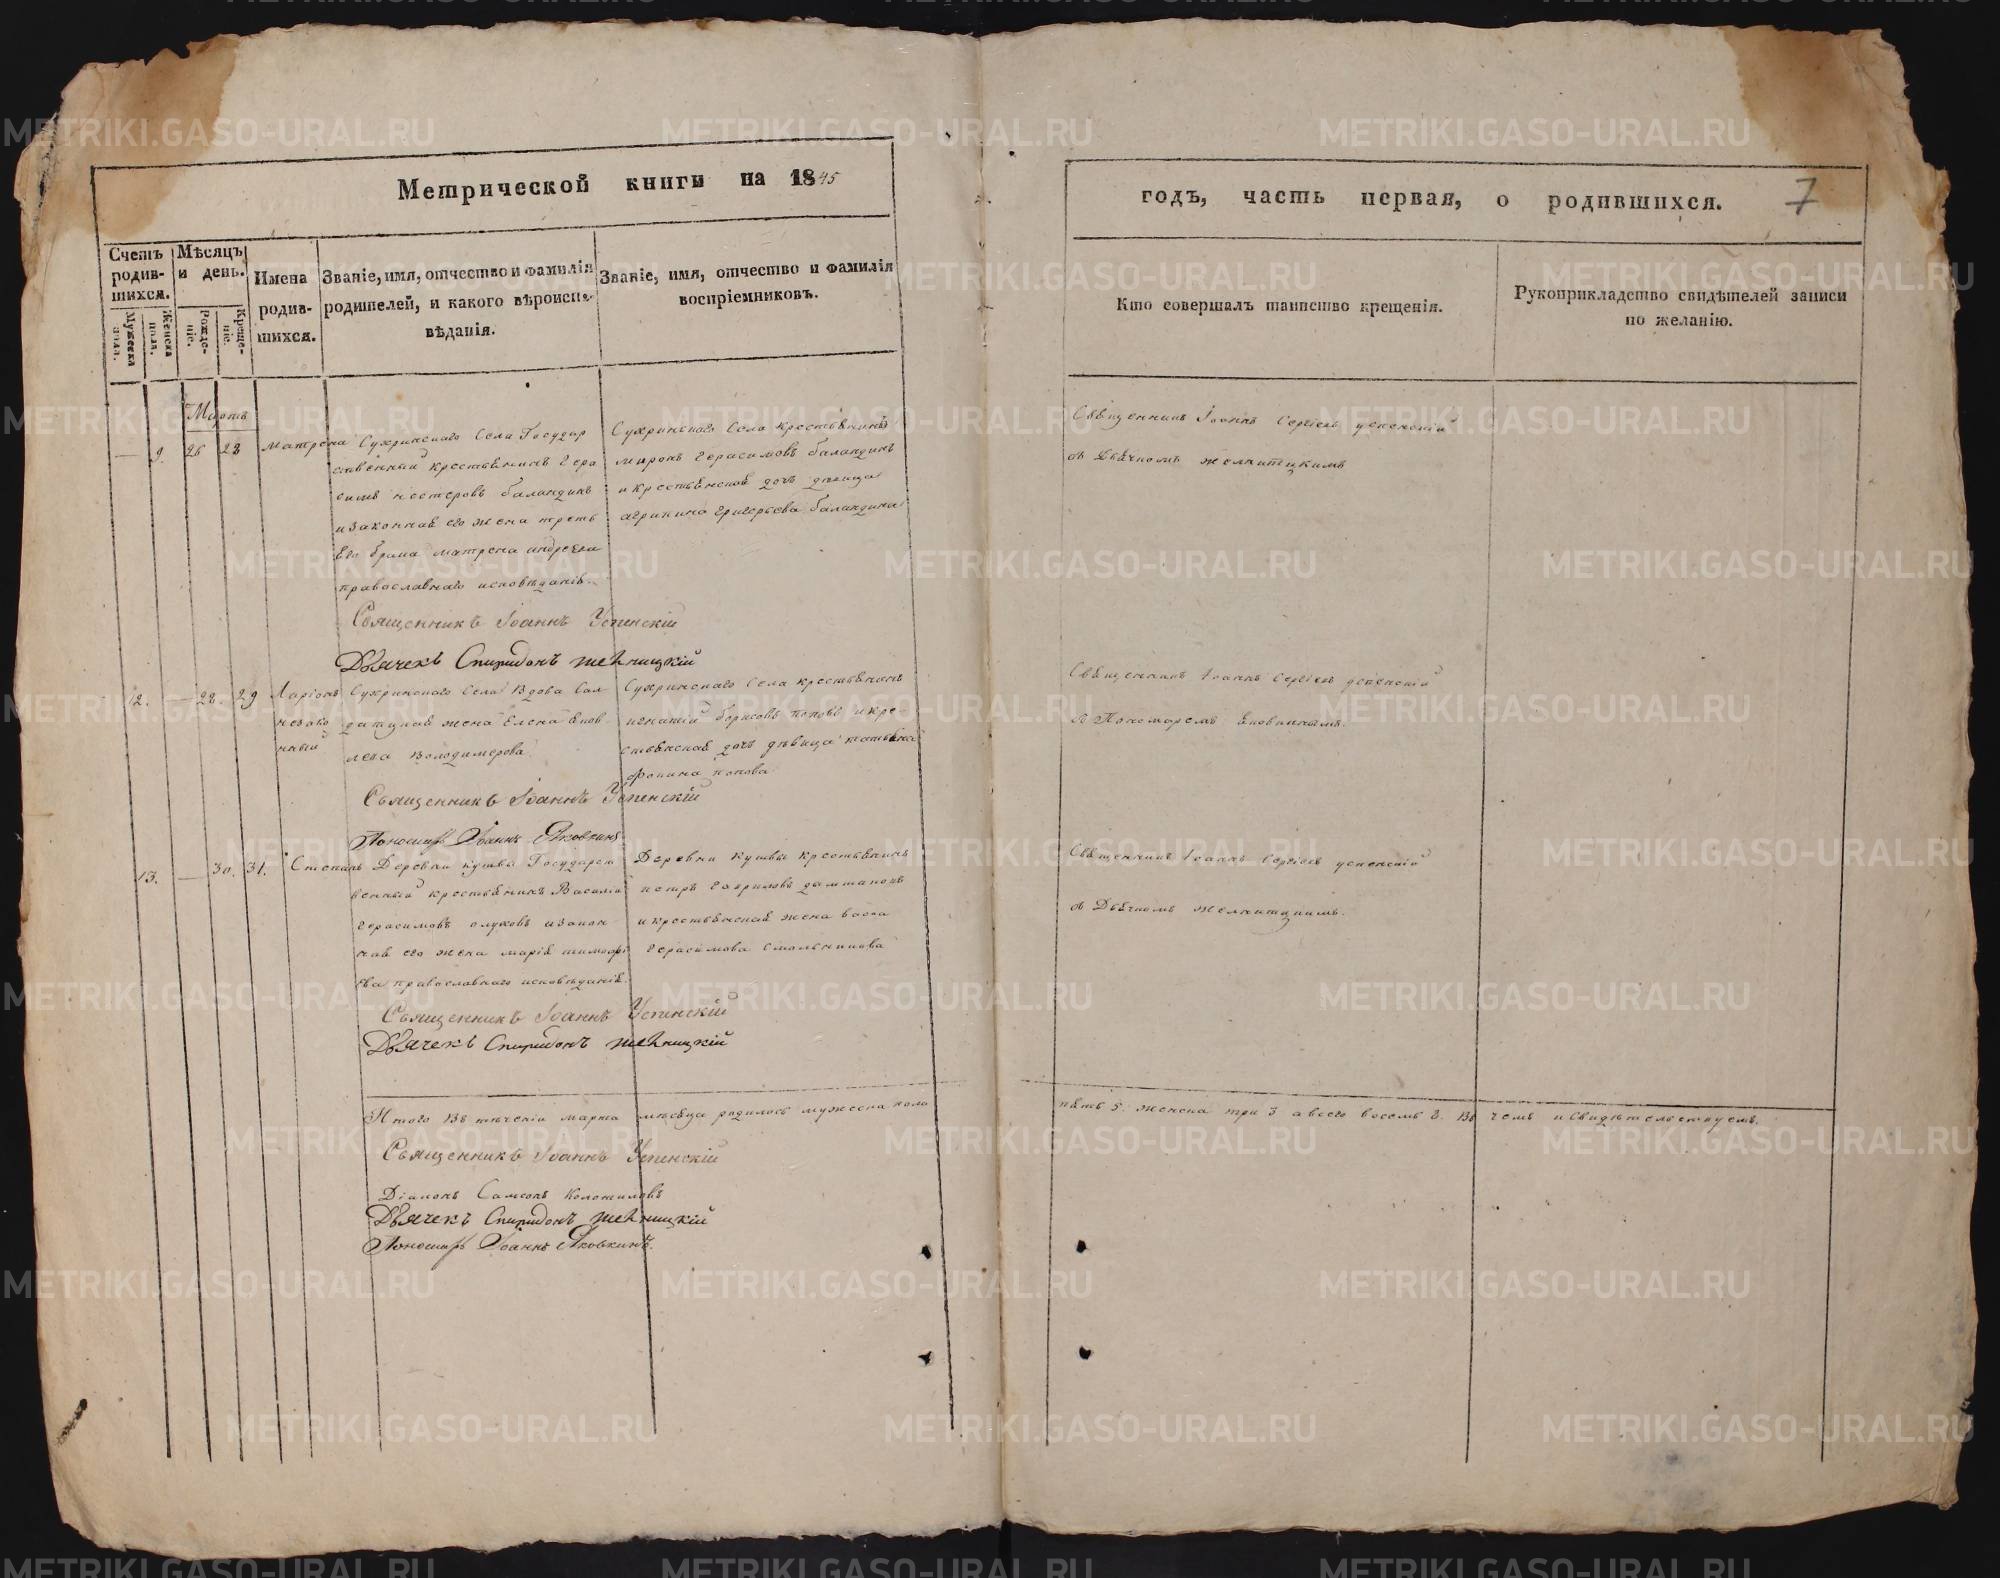 Метрической книги на 1845
годъ, часть первая, о родившихся. 7
Счетъ родив-шихся.
Мужеска пола.
Женска пола.
Мѣсяцъ и день.
Рожде-ніе.
Креще-ніе.
Имена родив-шихся.
Званіе, имя, отчество и фамилія
родителей, и какого вѣроиспо-
вѣданія.
Званіе, имя, отчество и фамилія
воспріемниковъ.
Кто совершалъ таинство крещенія.
Рукоприкладство свидѣтелей записи
по желанію.
Мартъ
— 9. 26 28 Матрена
Сухринскаго Села Государ
ственный крестьянинъ Гера
симъ Нестеровъ баландинъ
и законная его жена треть
его брака матрена андреева
православнаго исповѣданія.
Сухринскаго Села крестьянинъ
миронъ Герасимовъ баландинъ
и крестьянская дочь дѣвица
агрипина григорьева баландина
Священникъ Іоаннъ Сергіевъ успенскій
съ Дьячкомъ
Священникъ Іоаннъ Успенскій
Дьячекъ Спиридонъ
12. — 28. 29 Ларіонъ
незако
нный
Сухринскаго Села Вдова Сол
датская жена Елена
лева володимерова
Сухринскаго Села крестьянинъ
игнатій борисовъ поповъ и кре-
стьянская дочь дѣвица татьяна
фокина попова
Священникъ Іоаннъ Сергіевъ успенскій
съ Пономаремъ Яковкинымъ.
Священникъ Іоаннъ Успенскій
Пономарь Іоаннъ Яковкинъ
13. — 30. 31. Степанъ
Деревни кушвы Государст
венный крестьянинъ Василій
Герасимовъ глуховъ и закон
ная его жена марія тимофе
ева православнаго исповѣданія.
Деревни кушвы крестьянинъ
петръ гавриловъ
и крестьянская жена васса
герасимова смольникова
Священникъ Іоаннъ Сергіевъ успенскій
съ Дьячкомъ
Священникъ Іоаннъ Успенскій
Дьячекъ Спиридонъ
Итого въ теченіи марта мѣсяца родилось мужеска пола
пять 5. женска три 3 а всего восемь 8. Въ чемъ и свидѣтельствуемъ.
Священникъ Іоаннъ Успенскій
Діаконъ Самсонъ
Дьячекъ Спиридонъ
Пономарь Іоаннъ Яковкинъ.
METRIKI.GASO-URAL.RU